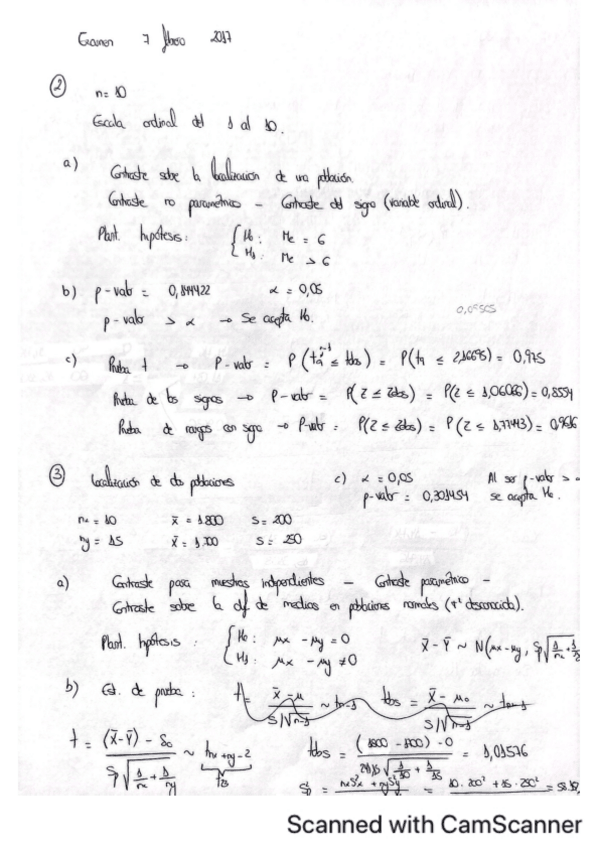 Examen 7 febrero 2017
②
n = 10
Escala ordinal del 1 al 10.
a) Contraste sobre la localización de una población.
Contraste no paramétrico – Contraste del signo (variable ordinal).
Plant. hipótesis: { H₀: Me = 6
H₁: Me > 6
b) p-valor = 0,144422 α = 0,05
p-valor > α → Se acepta H₀.
c) Prueba t → P-valor = P(t ≤ tobs) = P(t₉ ≤ 2,16695) = 0,975
Prueba de los signos → P-valor = P(Z ≤ Zobs) = P(Z ≤ 1,06066) = 0,8554
Prueba de rangos con signo → P-valor = P(Z ≤ Zobs) = P(Z ≤ 1,77443) =
③ Localización de dos poblaciones
c) α = 0,05 Al ser p-valor >
p-valor = 0,301454 se acepta H₀.
nx = 10 x̄ = 1.800 s = 200
ny = 15 x̄ = 1.700 s = 250
a) Contraste para muestras independientes – Contraste paramétrico –
Contraste sobre la dif. de medias en poblaciones normales (σ² desconocida).
Plant. hipótesis: { H₀: μx - μy = 0
H₁: μx - μy ≠ 0
X̄ - Ȳ ~ N(μx - μy, Sp√(1/nx + 1/
b) Est. de prueba:
t = ((X̄-Ȳ) - δ₀) / (Sp√(1/nx + 1/ny)) ~ tnx+ny-2
tobs = ((1800 - 1700) - 0) / = 1,01576
Scanned with CamScanner